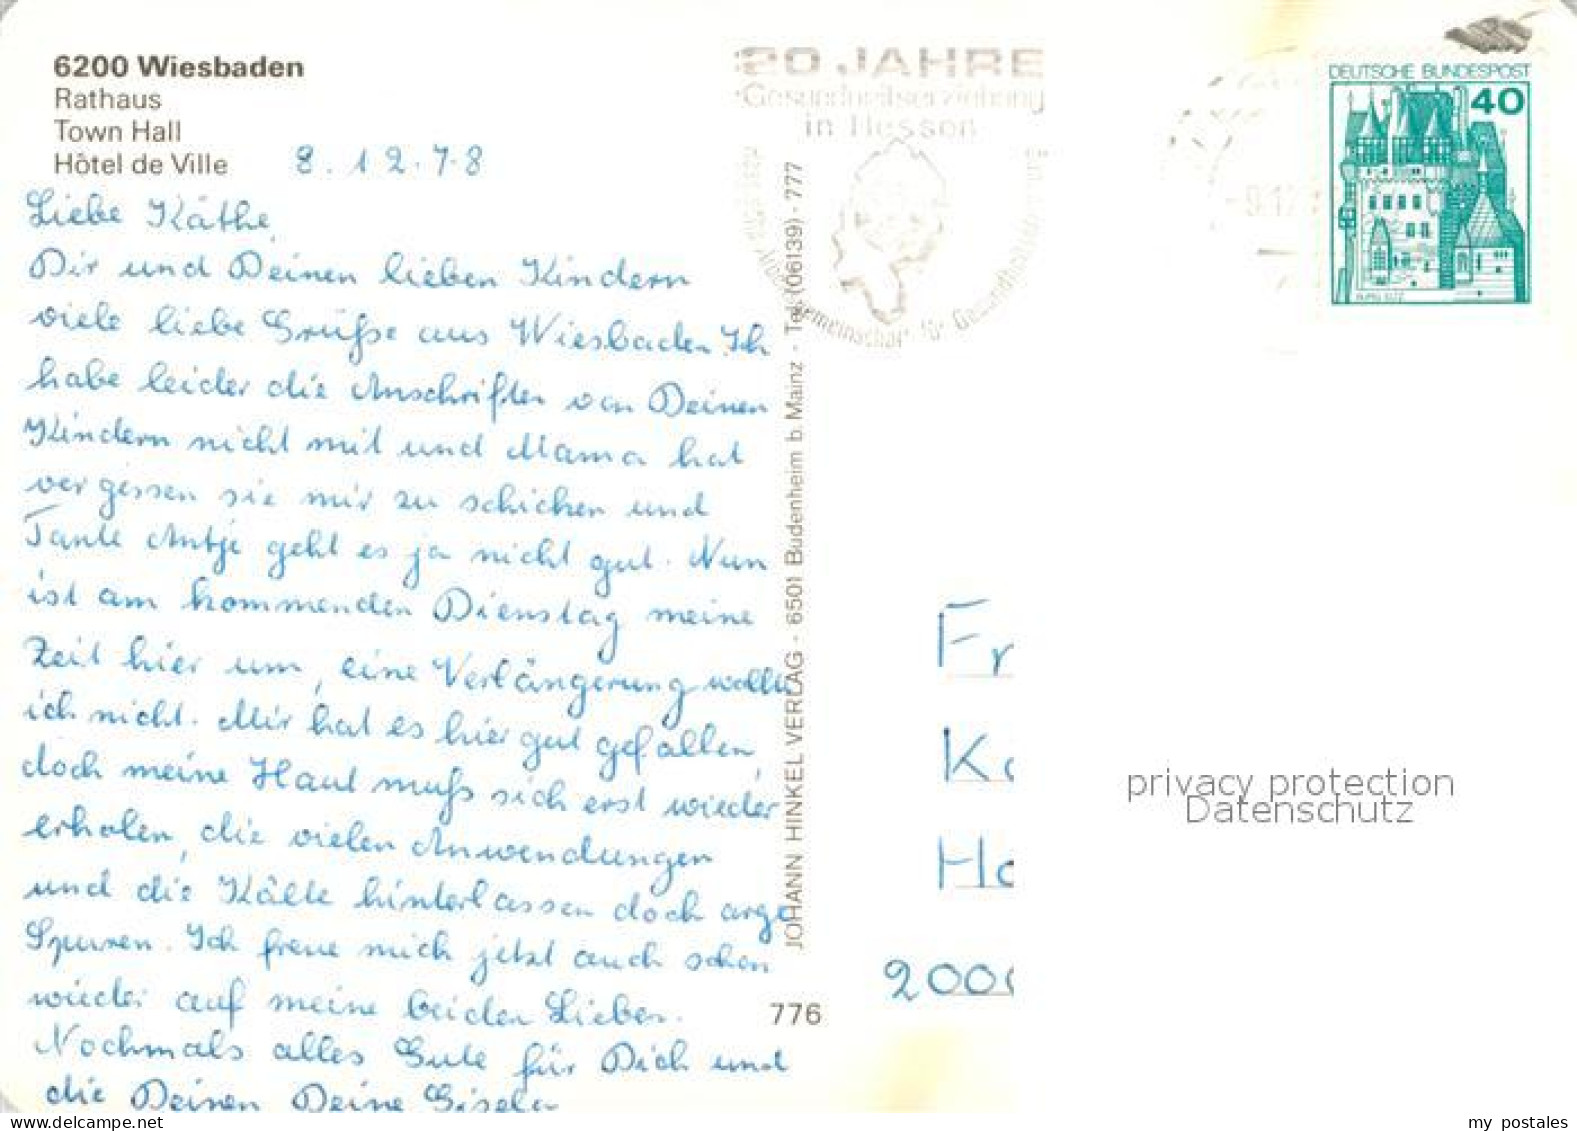 6200 Wiesbaden
Rathaus
Town Hall
Hôtel de Ville
8.12.78
Liebe Käthe,
Dir und Deinen lieben Kindern
viele liebe Grüße aus Wiesbaden. Ich
habe leider die Anschriften von Deinen
Kindern nicht mit und Mama hat
vergessen sie mir zu schicken und
Tante Antje geht es ja nicht gut. Nun
ist am kommenden Dienstag meine
Zeit hier um, eine Verlängerung wollte
ich nicht. Mir hat es hier gut gefallen,
doch meine Haut muß sich erst wieder
erholen, die vielen Anwendungen
und die Kälte hinterlassen doch arge
Spuren. Ich freue mich jetzt auch schon
wieder auf meine beiden Lieben.
Nochmals alles Gute für Dich und
die Deinen Deine Gisela
JOHANN HINKEL VERLAG · 6501 Budenheim b. Mainz · Tel. (06139) - 777
776
20 JAHRE
Gesundheitserziehung
in Hessen
für Gesundheitserziehung
DEUTSCHE BUNDESPOST
40
BURG ELTZ
Fr
Ka
Ha
2000
privacy protection
Datenschutz
delcampe.net
my_postales